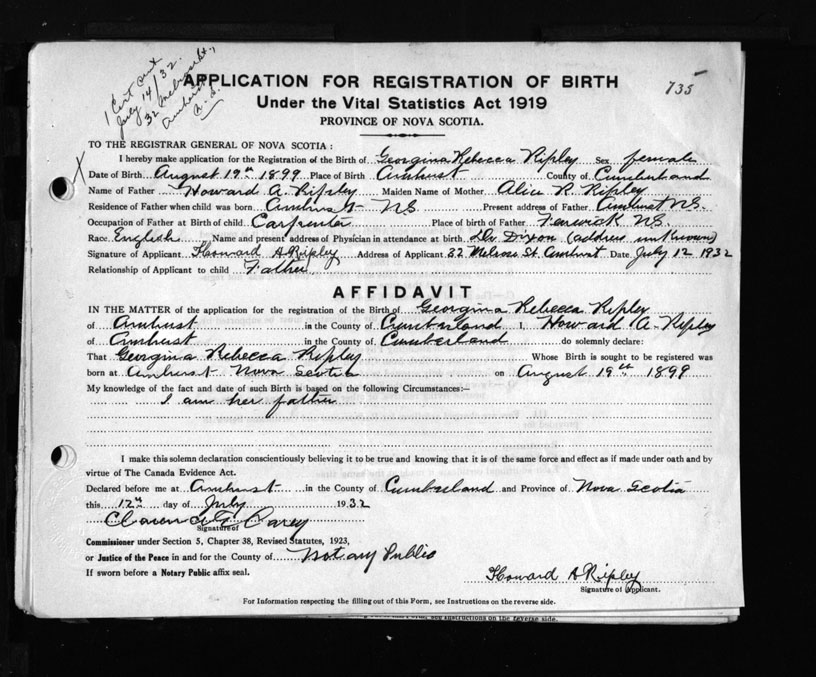 1 Cert sent
July 14/32.
32 Melrose St.,
Amherst
N. S.
735
APPLICATION FOR REGISTRATION OF BIRTH
Under the Vital Statistics Act 1919
PROVINCE OF NOVA SCOTIA.
TO THE REGISTRAR GENERAL OF NOVA SCOTIA :
I hereby make application for the Registration of the Birth of Georgina Rebecca Ripley Sex female
Date of Birth August 19th 1899 Place of Birth Amherst County of Cumberland
Name of Father Howard A. Ripley Maiden Name of Mother Alice R. Ripley
Residence of Father when child was born Amherst NS Present address of Father Amherst N.S.
Occupation of Father at Birth of child Carpenter Place of birth of Father Fenwick N.S.
Race English Name and present address of Physician in attendance at birth Dr Dixon (address unknown)
Signature of Applicant Howard A Ripley Address of Applicant 32 Melrose St. Amherst Date July 12 1932
Relationship of Applicant to child Father
AFFIDAVIT
IN THE MATTER of the application for the registration of the Birth of Georgina Rebecca Ripley
of Amherst in the County of Cumberland I, Howard A. Ripley
of Amherst in the County of Cumberland do solemnly declare:
That Georgina Rebecca Ripley Whose Birth is sought to be registered was
born at Amherst Nova Scotia on August 19th 1899
My knowledge of the fact and date of such Birth is based on the following Circumstances:—
I am her father
I make this solemn declaration conscientiously believing it to be true and knowing that it is of the same force and effect as if made under oath and by
virtue of The Canada Evidence Act.
Declared before me at Amherst in the County of Cumberland and Province of Nova Scotia
this 12th day of July 1932
Clarence G. Carey
Signature of
Commissioner under Section 5, Chapter 38, Revised Statutes, 1923,
or Justice of the Peace in and for the County of Notary Public
If sworn before a Notary Public affix seal.
Howard A Ripley
Signature of Applicant.
For Information respecting the filling out of this Form, see Instructions on the reverse side.
see Instructions on the reverse side.